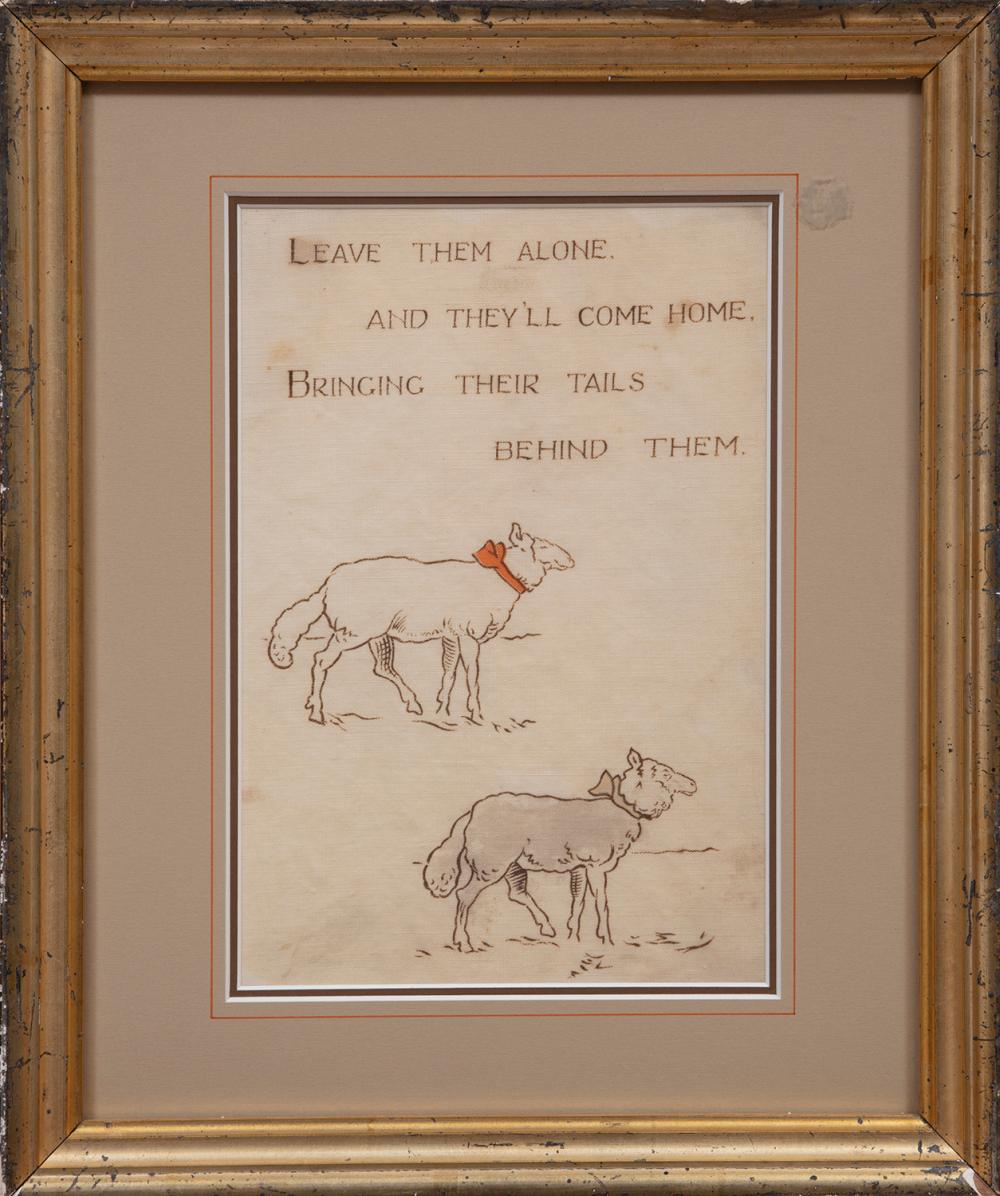 LEAVE THEM ALONE.
AND THEY'LL COME HOME,
BRINGING THEIR TAILS
BEHIND THEM.